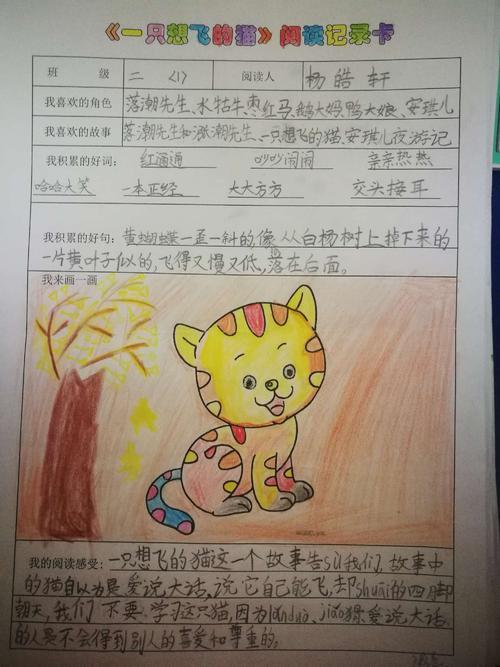 《一只想飞的猫》阅读记录卡
班 级 二 (1) 阅读人 杨皓轩
我喜欢的角色 落潮先生、水牯牛、枣红马、鹅大妈、鸭大娘、安琪儿
我喜欢的故事 落潮先生和涨潮先生、一只想飞的猫、安琪儿夜游记
我积累的好词: 红通通 吵吵闹闹 亲亲热热
哈哈大笑 一本正经 大大方方 交头接耳
我积累的好句: 黄蝴蝶一歪一斜的,像从白杨树上掉下来的
一片黄叶子似的,飞得又慢又低,落在后面。
我来画一画
我的阅读感受: 一只想飞的猫这一个故事告sù我们,故事中
的猫自以为是爱说大话,说它自己能飞,却shuāi的四脚
朝天,我们不要学习这只猫,因为lǎnduò、jiāo傲爱说大话
的人是不会得到别人的喜爱和尊重的。